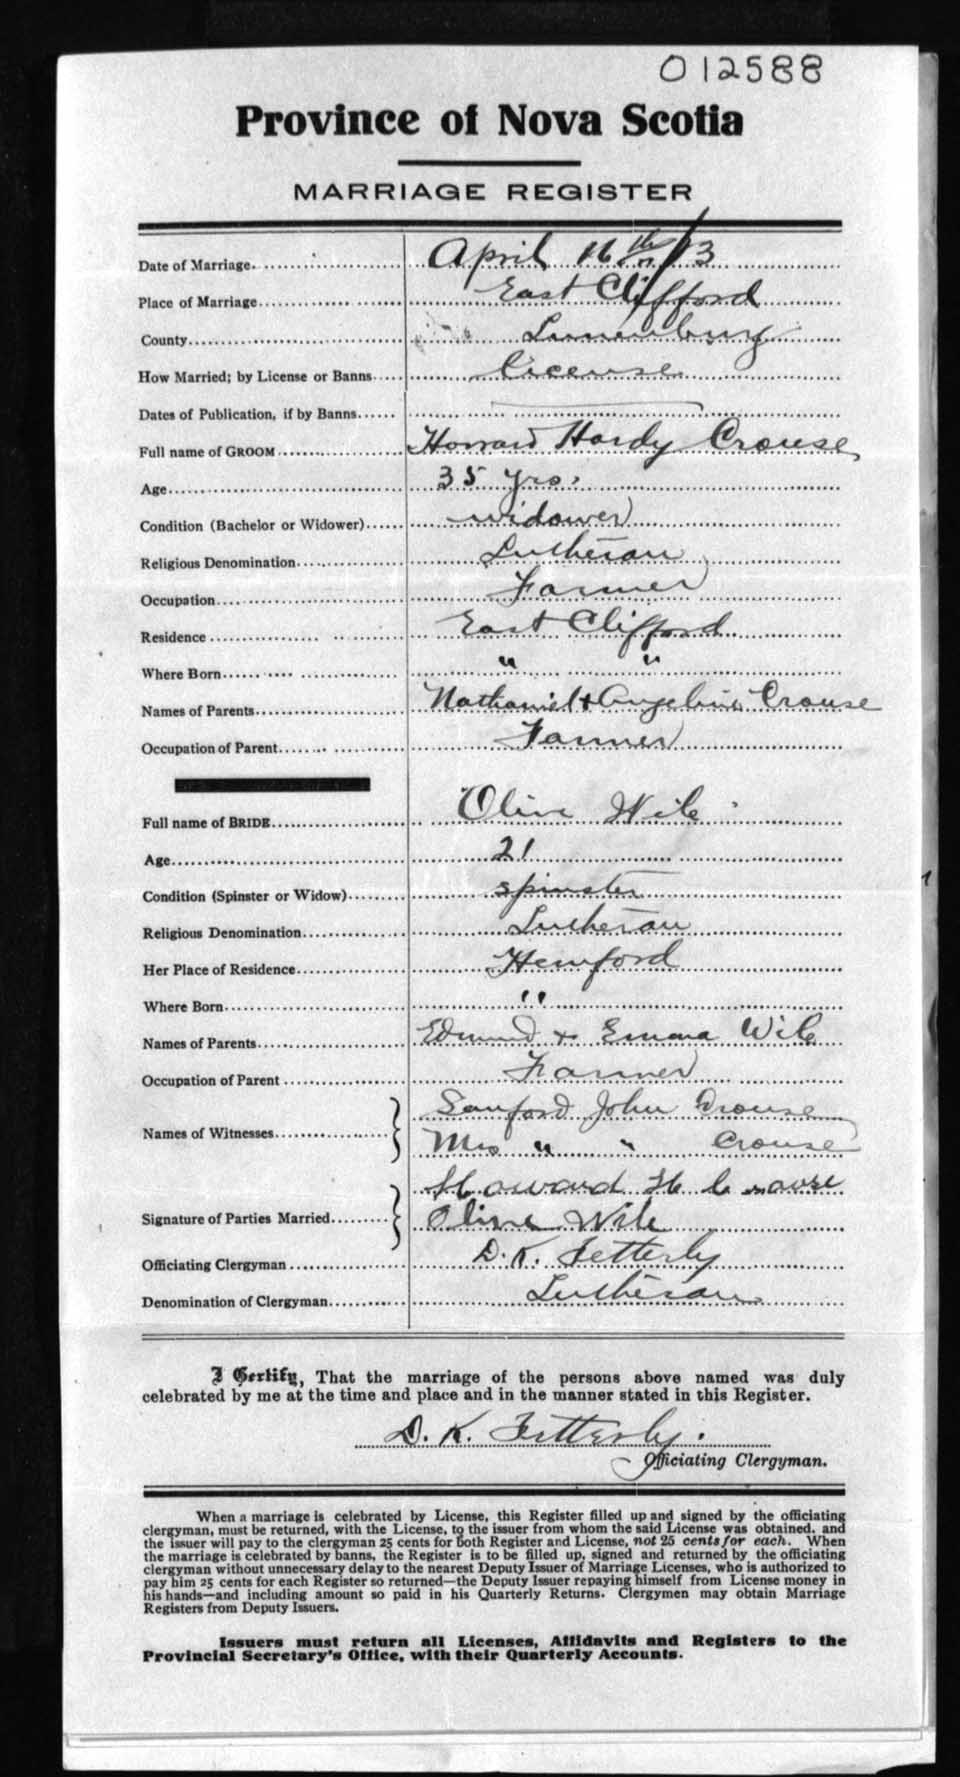 012588
Province of Nova Scotia
MARRIAGE REGISTER
Date of Marriage. April 16th /13
Place of Marriage East Clifford
County Lunenburg
How Married; by License or Banns License
Dates of Publication, if by Banns
Full name of GROOM Howard Hardy Crouse
Age 35 yrs.
Condition (Bachelor or Widower) widower
Religious Denomination Lutheran
Occupation Farmer
Residence East Clifford
Where Born " "
Names of Parents Nathaniel & Angeline Crouse
Occupation of Parent Farmer
Full name of BRIDE Olive Wile
Age 21
Condition (Spinster or Widow) spinster
Religious Denomination Lutheran
Her Place of Residence Hemford
Where Born "
Names of Parents Edmund & Emma Wile
Occupation of Parent Farmer
Names of Witnesses Sanford John Crouse
Mrs " " Crouse
Signature of Parties Married Howard H Crouse
Olive Wile
Officiating Clergyman D. K. Fetterly
Denomination of Clergyman Lutheran
I Certify, That the marriage of the persons above named was duly
celebrated by me at the time and place and in the manner stated in this Register.
D. K. Fetterly.
Officiating Clergyman.
When a marriage is celebrated by License, this Register filled up and signed by the officiating
clergyman, must be returned, with the License, to the issuer from whom the said License was obtained. and
the issuer will pay to the clergyman 25 cents for both Register and License, not 25 cents for each. When
the marriage is celebrated by banns, the Register is to be filled up, signed and returned by the officiating
clergyman without unnecessary delay to the nearest Deputy Issuer of Marriage Licenses, who is authorized to
pay him 25 cents for each Register so returned—the Deputy Issuer repaying himself from License money in
his hands—and including amount so paid in his Quarterly Returns. Clergymen may obtain Marriage
Registers from Deputy Issuers.
Issuers must return all Licenses, Affidavits and Registers to the
Provincial Secretary's Office, with their Quarterly Accounts.